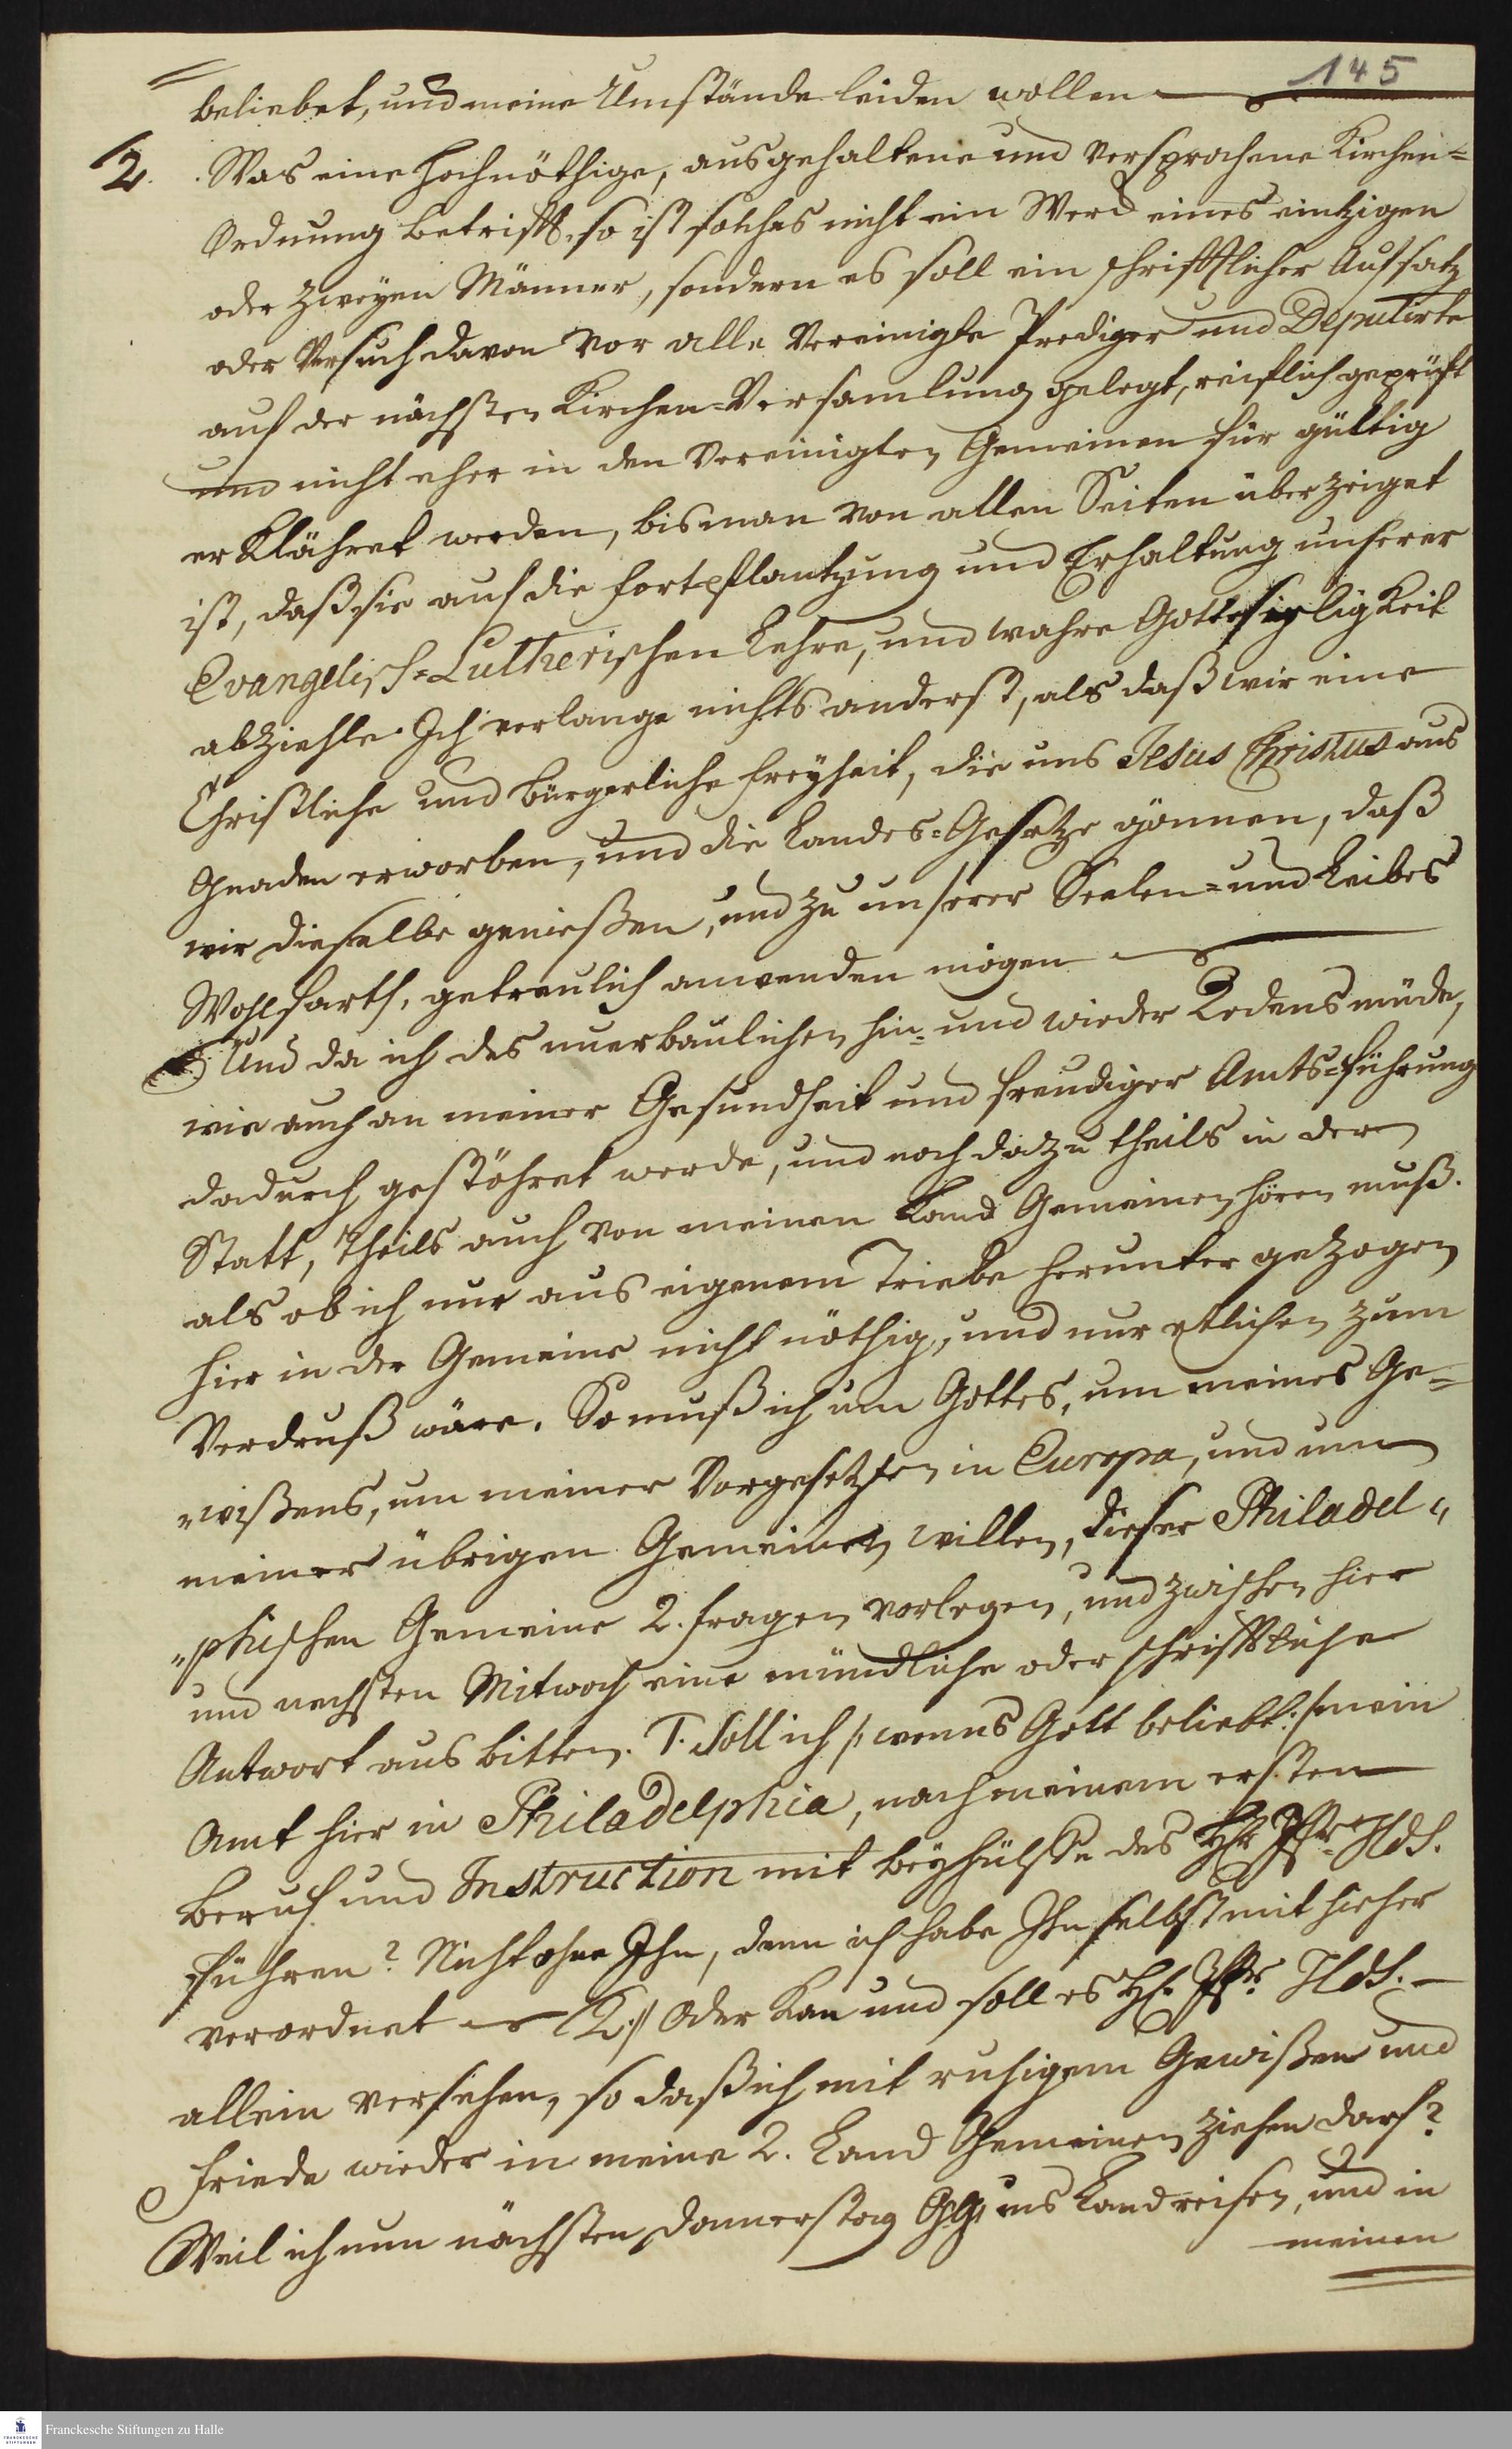 145
beliebet, und meine Umstände leiden wollen —
2. Was eine hochnöthige, ausgehaltene und versprochene Kirchen=
Ordnung betrifft, so ist solches nicht ein Werck eines eintzigen
oder zweyen Männer, sondern es soll ein schrifftlicher Aufsatz
oder Versuch davon vor alle Vereinigte Prediger und Deputirte
auf der nächsten Kirchen=Versamlung gelegt, reiflich geprüft
und nicht eher in den Vereinigten Gemeinen für gültig
erklähret werden, bis man von allen Seiten überzeiget
ist, daß sie auf die fortpflantzung und Erhaltung unserer
Evangelisch=Lutherischen Lehre, und wahre Gottseeligkeit
abziehle. Ich verlange nichts anderst, als daß wir eine
Christliche und bürgerliche freyheit, die uns Jesus Christus aus
Gnaden erworben, und die Landes=Gesetze gönnen, daß
wir dieselbe genießen, und zu unserer Seelen= und Leibes
Wohlfarth, getreulich anwenden mögen —
Und da ich des unerbaulichen hin= und wieder Redens müde,
wie auch an meiner Gesundheit und freudiger Amts=führung
dadurch gestöhret werde, und noch dazu theils in der
Statt, theils auch von meinen Land Gemeinen hören muß.
als ob ich nur aus eigenem Triebe herunter gezogen
hier in der Gemeine nicht nöthig, und nur etlichen zum
Verdruß wäre. So muß ich um Gottes, um meines Ge=
wißens, um meiner Vorgesetzten in Europa, und um
meiner übrigen Gemeinen willen, dieser Philadel „
„phischen Gemeine 2. fragen vorlegen, und zwischen hier
und nechsten Mitwoch eine mündliche oder schrifftliche
Antwort aus bitten. 1. Soll ich /: wenns Gott beliebt :/ mein
Amt hier in Philadelphia, nach meinem ersten
Beruf und Instruction mit beyhülffe des HE. Pfr. Hds.
führen? Nicht ohne Ihn, denn ich habe Ihn selbst mit hieher
verordnet — (2.) Oder kan und soll es H. Pfr. Hds. —
allein versehen, so daß ich mit ruhigem Gewißen und
Friede wieder in meine 2. Land Gemeinen ziehen darf?
Weil ich nun nächsten Donnerstag GG. ins Land reisen, und in
meinen
Franckesche Stiftungen zu Halle